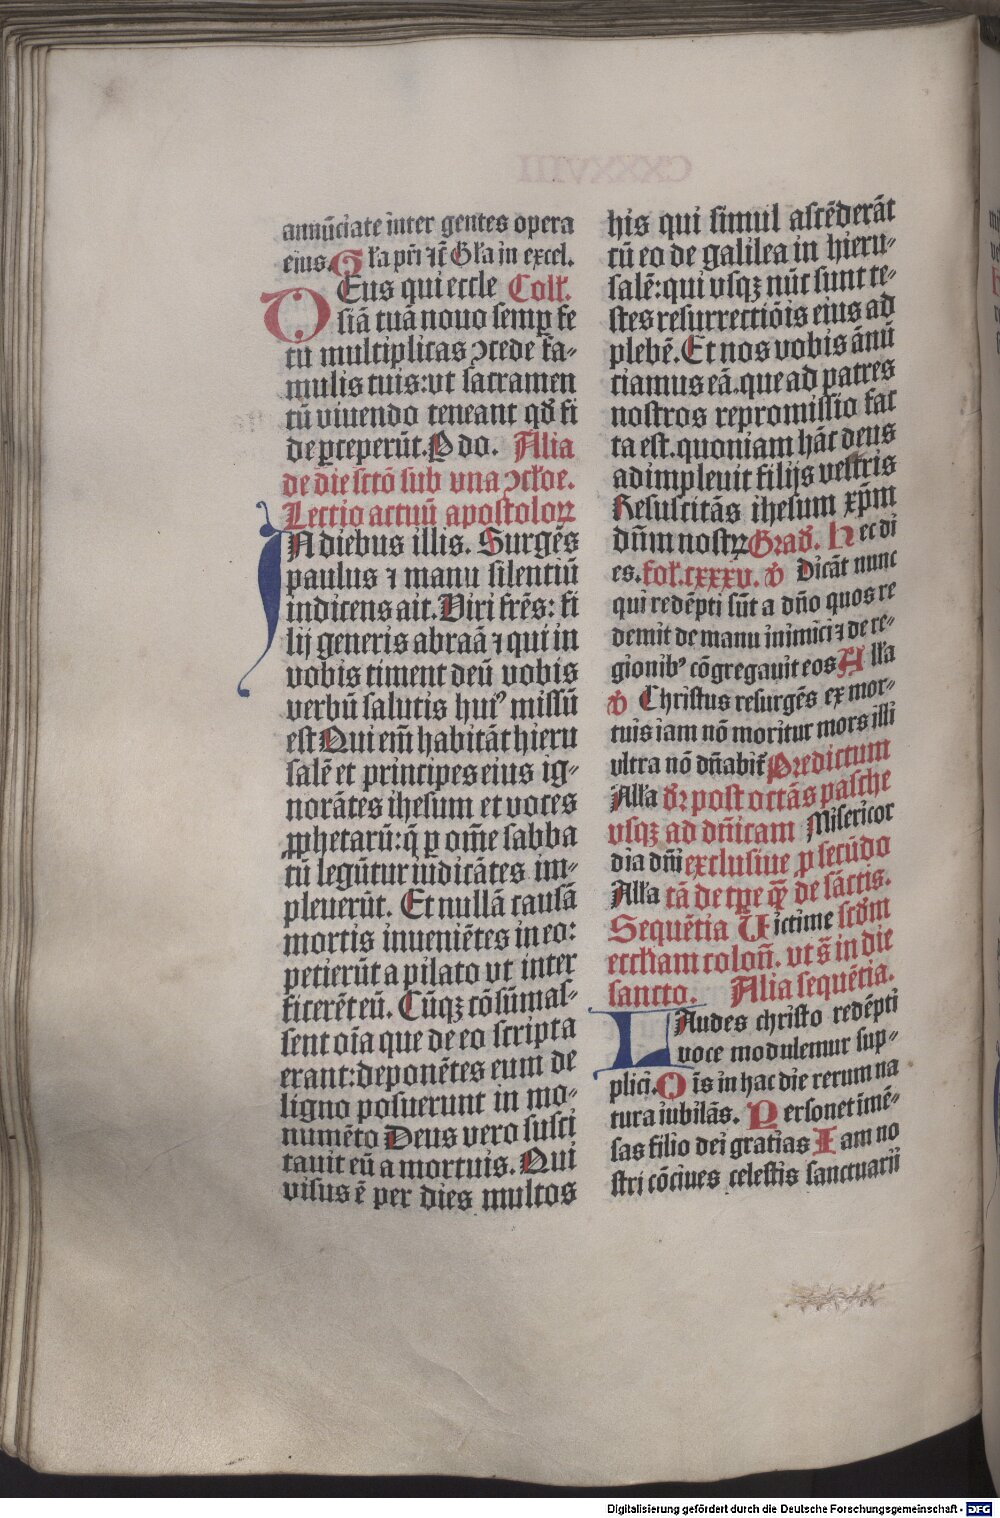 annūciate inter gentes opera
eius. Gl'a pr̄i ⁊ it̄ Gl'a in excel.
DEus qui eccle Coll'.
siā tuā nouo semꝑ fe
tu multiplicas ꝯcede fa-
mulis tuis: vt sacramen
tū viuendo teneant qd' fi
de ꝑceperūt. P do. Alia
de die sctō sub vna ꝯcl'oe.
Lectio actuū apostoloꝝ
IN diebus illis. Surgēs
paulus ⁊ manu silentiū
indicens ait. Viri fr̄es: fi
lij generis abraā ⁊ qui in
vobis timent deū vobis
verbū salutis huiꝰ missū
est Qui em̄ habitāt hieru
salē et principes eius ig-
norātes ihesum et voces
ꝓphetarū: q̄ ꝑ om̄e sabba
tū legūtur iudicātes im-
pleuerūt. Et nullā causā
mortis inueniētes in eo:
petierūt a pilato vt inter
ficerēt eū. Cūqꝫ cōsūmas-
sent oīa que de eo scripta
erant: deponētes eum de
ligno posuerunt in mo-
numēto Deus vero susci
tauit eū a mortuis. Qui
visus ē per dies multos
his qui simul ascēderāt
cū eo de galilea in hieru-
salē: qui vsqꝫ nūc sunt te-
stes resurrectiōis eius ad
plebē. Et nos vobis ānū
ciamus eā. que ad patres
nostros repromissio fac
ta est. quoniam hāc deus
adimpleuit filijs vestris
Resuscitās ihesum xp̄m
dn̄m nostꝝ Grad'. Hec di
es. fol'. cxxxv. v̄ Dicāt nunc
qui redēpti sūt a dn̄o quos re
demit de manu inimici ⁊ de re-
gionibꝰ cōgregauit eos All'a
v̄ Christus resurgēs ex mor-
tuis iam nō moritur mors illi
ultra nō dn̄abit̄ Predictum
All'a dr̄ post octās pasche
vsqꝫ ad dn̄icam Misericor
dia dn̄i exclusiue ꝓ secūdo
All'a tā de tp̄e q̄ȝ de sāctis.
Sequētia Victime scd̄m
eccl'iam colon̄. vt s̄ in die
sancto. Alia sequētia.
LAudes christo redēpti
voce modulemur sup-
plici. Oīs in hac die rerum na
tura iubilās. Personet īmē-
sas filio dei gratias Iam no
stri cōciues celestis sanctuarii
Digitalisierung gefördert durch die Deutsche Forschungsgemeinschaft - DFG